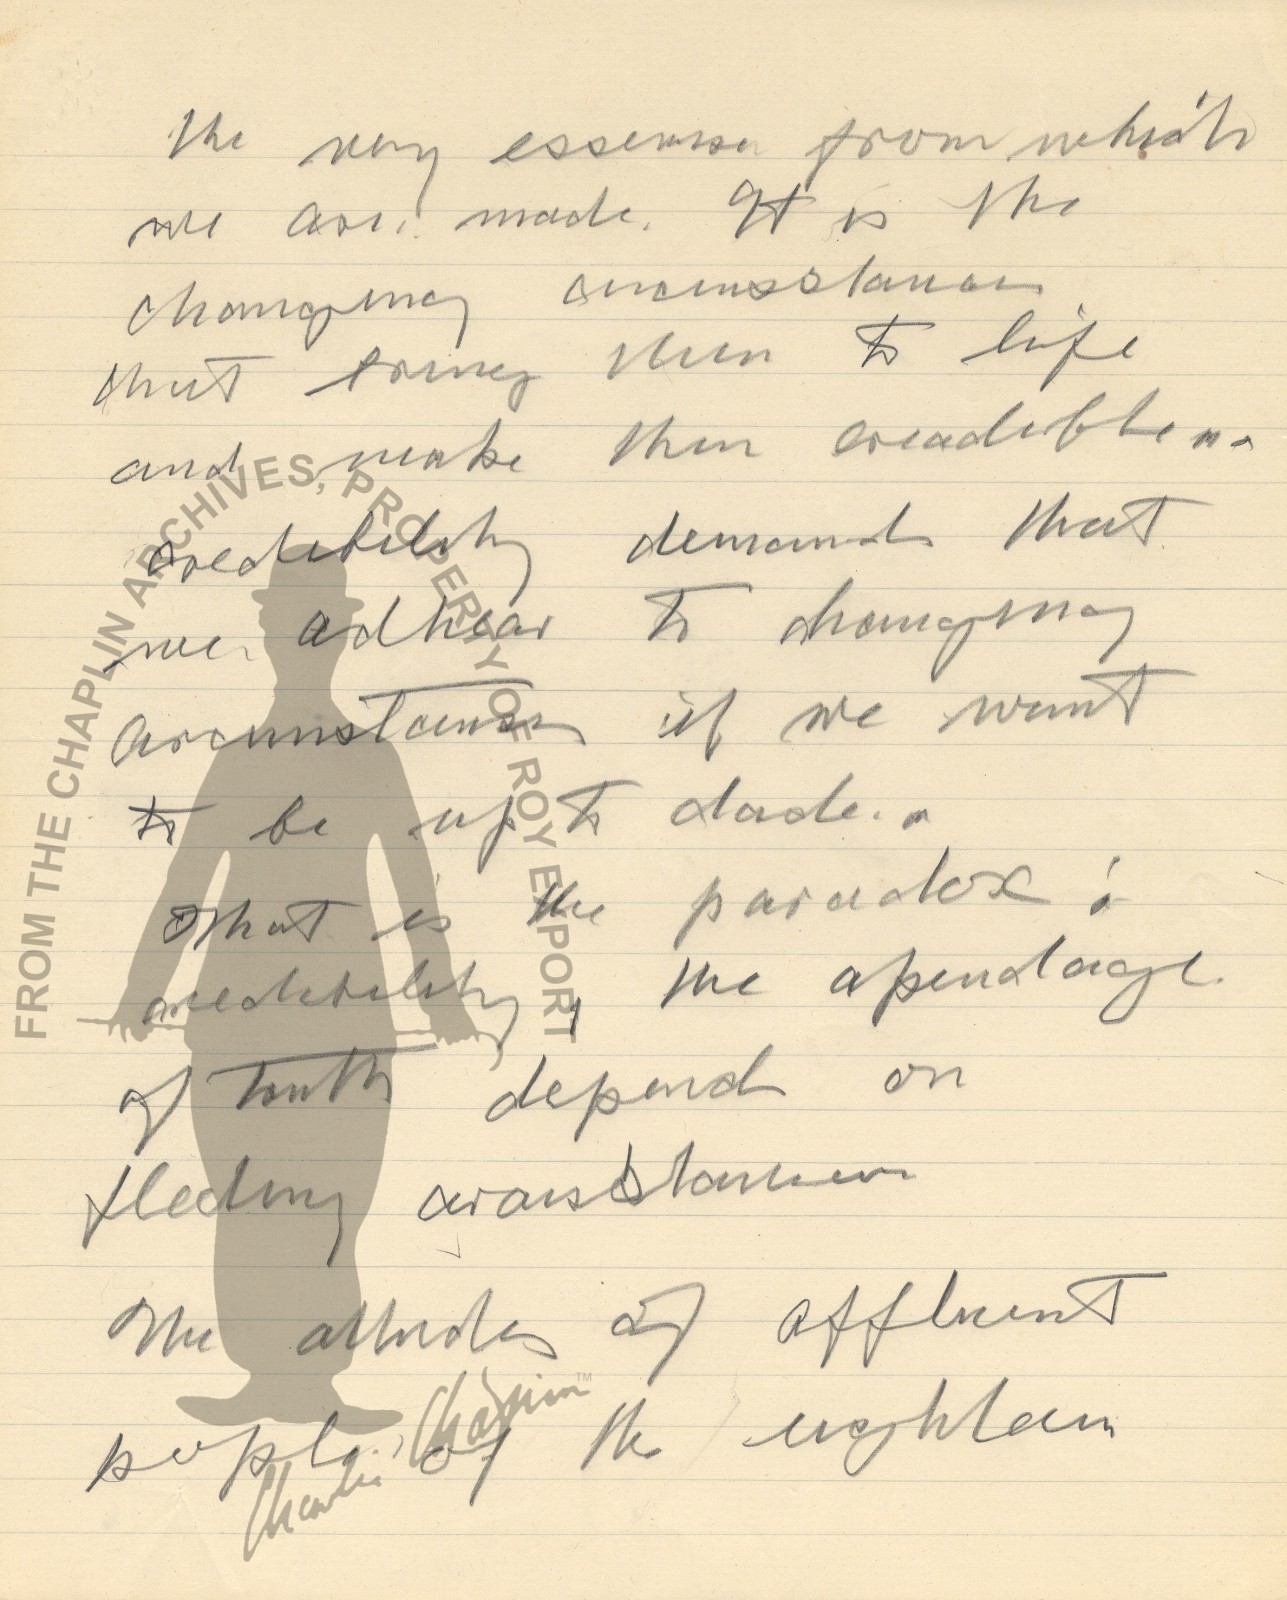 the very essense from which
we are made. It is the
changing circumsstances
that bring them to life
and make them creadible..
credibility demands that
we adhear to changing
circumstances if we want
to be up to dade..
That is the paradox:
credibility, the apendage
of truth depend on
fleeting
The attitudes of affluent
people of the eighteen
FROM THE CHAPLIN ARCHIVES, PROPERTY OF ROY EXPORT
Charlie Chaplin™